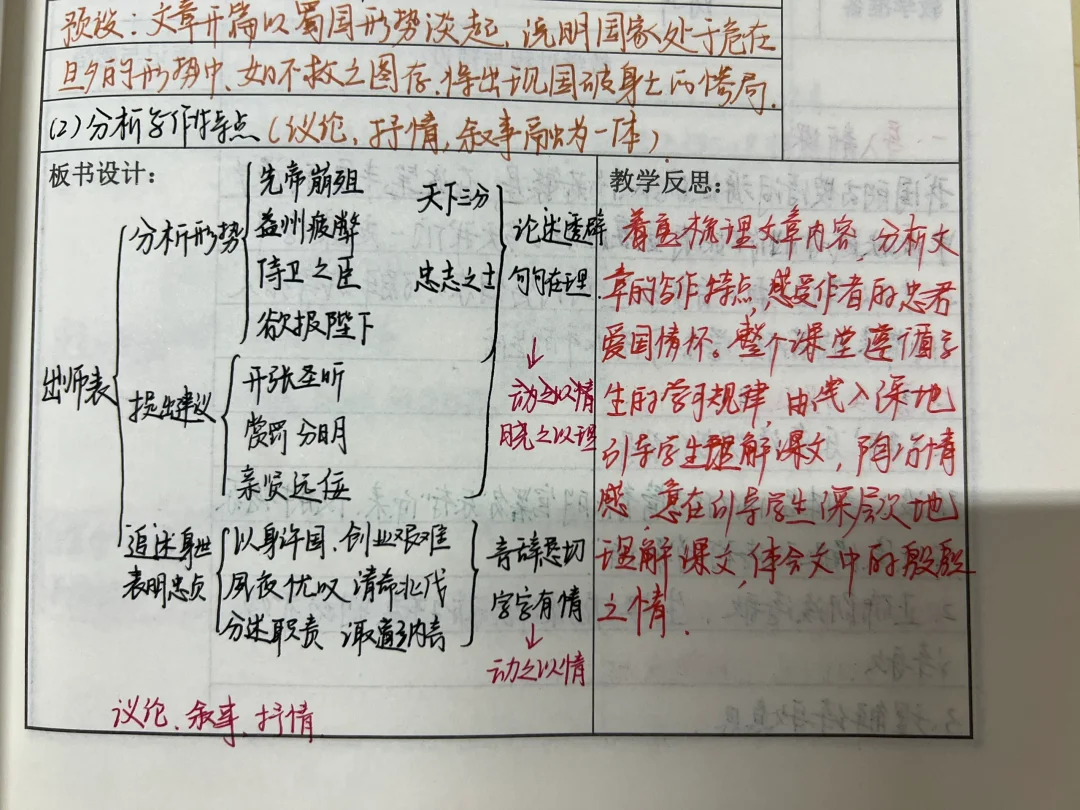 预设：文章开篇以蜀国形势谈起，说明国家处于危在
旦夕的形势中，如不救之图存，将出现国破身亡的惨局.
(2)分析写作特点（议论，抒情，叙事融为一体）
板书设计：
出师表
分析形势
先帝崩殂
益州疲弊
侍卫之臣
欲报陛下
天下三分
忠志之士
提出建议
开张圣听
赏罚分明
亲贤远佞
论述透辟
句句在理
↓
动之以情
晓之以理
追述身世
表明忠贞
以身许国、创业艰难
夙夜忧叹 请命北伐
分述职责
言辞恳切
字字有情
↓
动之以情
议论、叙事、抒情
教学反思：
着重梳理文章内容，分析文
章的写作特点，感受作者的忠君
爱国情怀。整个课堂遵循学
生的学习规律，由浅入深地
引导学生理解课文，陶冶情
感，意在引导学生深层次地
理解课文，体会文中的殷殷
之情.